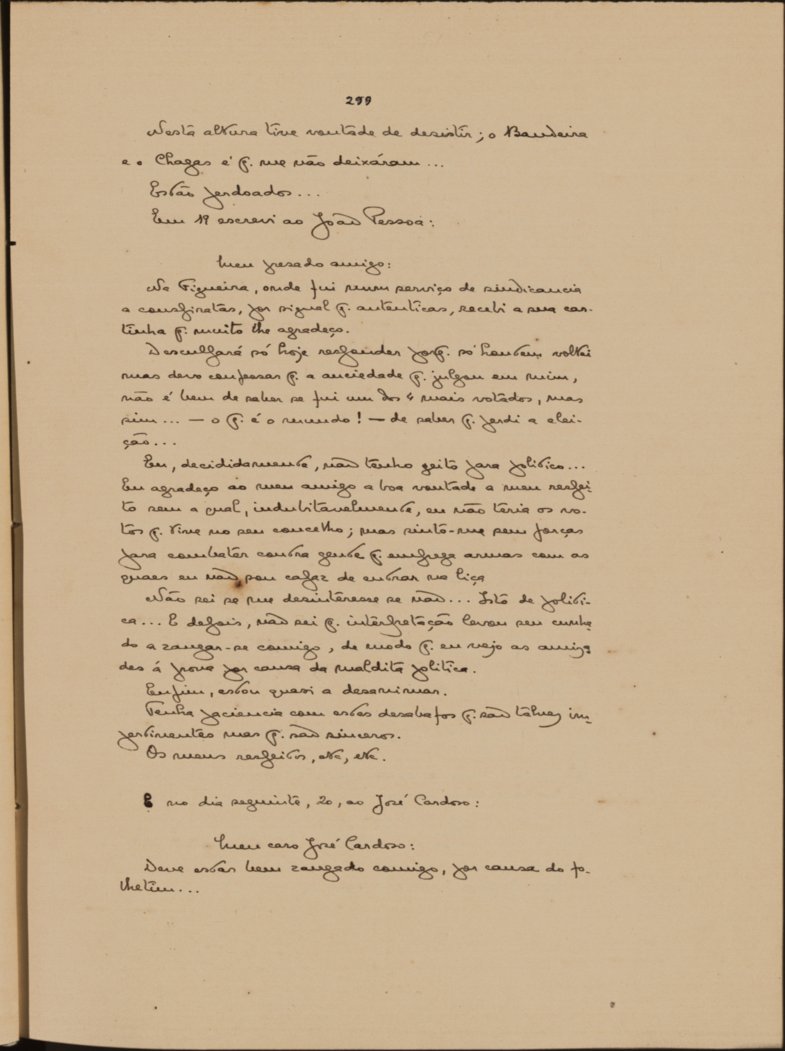 299
Nesta altura tive vontade de desistir; o Bandeira
e o Chagas é q. me não deixáram...
Estão perdoados...
Em 19 escrevi ao João Pessoa:
Meu presado amigo:
Na Figueira, onde fui num serviço de sindicancia
a conspiratas, por signal q. autenticas, recebi a sua car-
tinha q. muito lhe agradeço.
Desculpará só hoje responder porq. só hontem voltei
mas devo confessar q. a anciedade q. julgou em mim,
não é bem de saber se fui um dos 4 mais votados, mas
sim... — o q. é o mundo! — de saber q. perdi a elei-
ção...
Eu, decididamente, não tenho geito para politico...
Eu agradeço ao meu amigo a boa vontade a meu respei-
to sem a qual, indubitavelmente, eu não teria os vo-
tos q. tive no seu concelho; mas sinto-me sem forças
para combater contra gente q. emprega armas com as
quaes eu não sou capaz de entrar na liça
Não sei se me desinteresse se não... Isto de politi-
ca... E depois, não sei q. interpretação levou seu cunha
do a zangar-se comigo, de modo q. eu vejo as amiza
des á prova por causa da maldita politica.
Enfim, estou quasi a desanimar.
Tenha paciencia com estes desabafos q. são talvez im-
pertinentes mas q. são sinceros.
Os meus respeitos, etc, etc.
E no dia seguinte, 20, ao José Cardoso:
Meu caro José Cardoso:
Deve estar bem zangado comigo, por causa do fo-
lhetim...